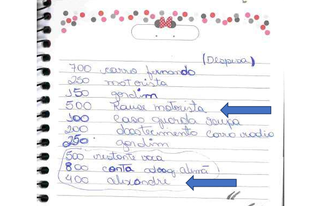 (Despesa)
700 carro fernando
250 motorista
150 gordim
500 Kause motorista
300 caso guarda roupa
200 abastecimento carro radio
250 gordim
500 restante vaca
800 conta
400 alixandre